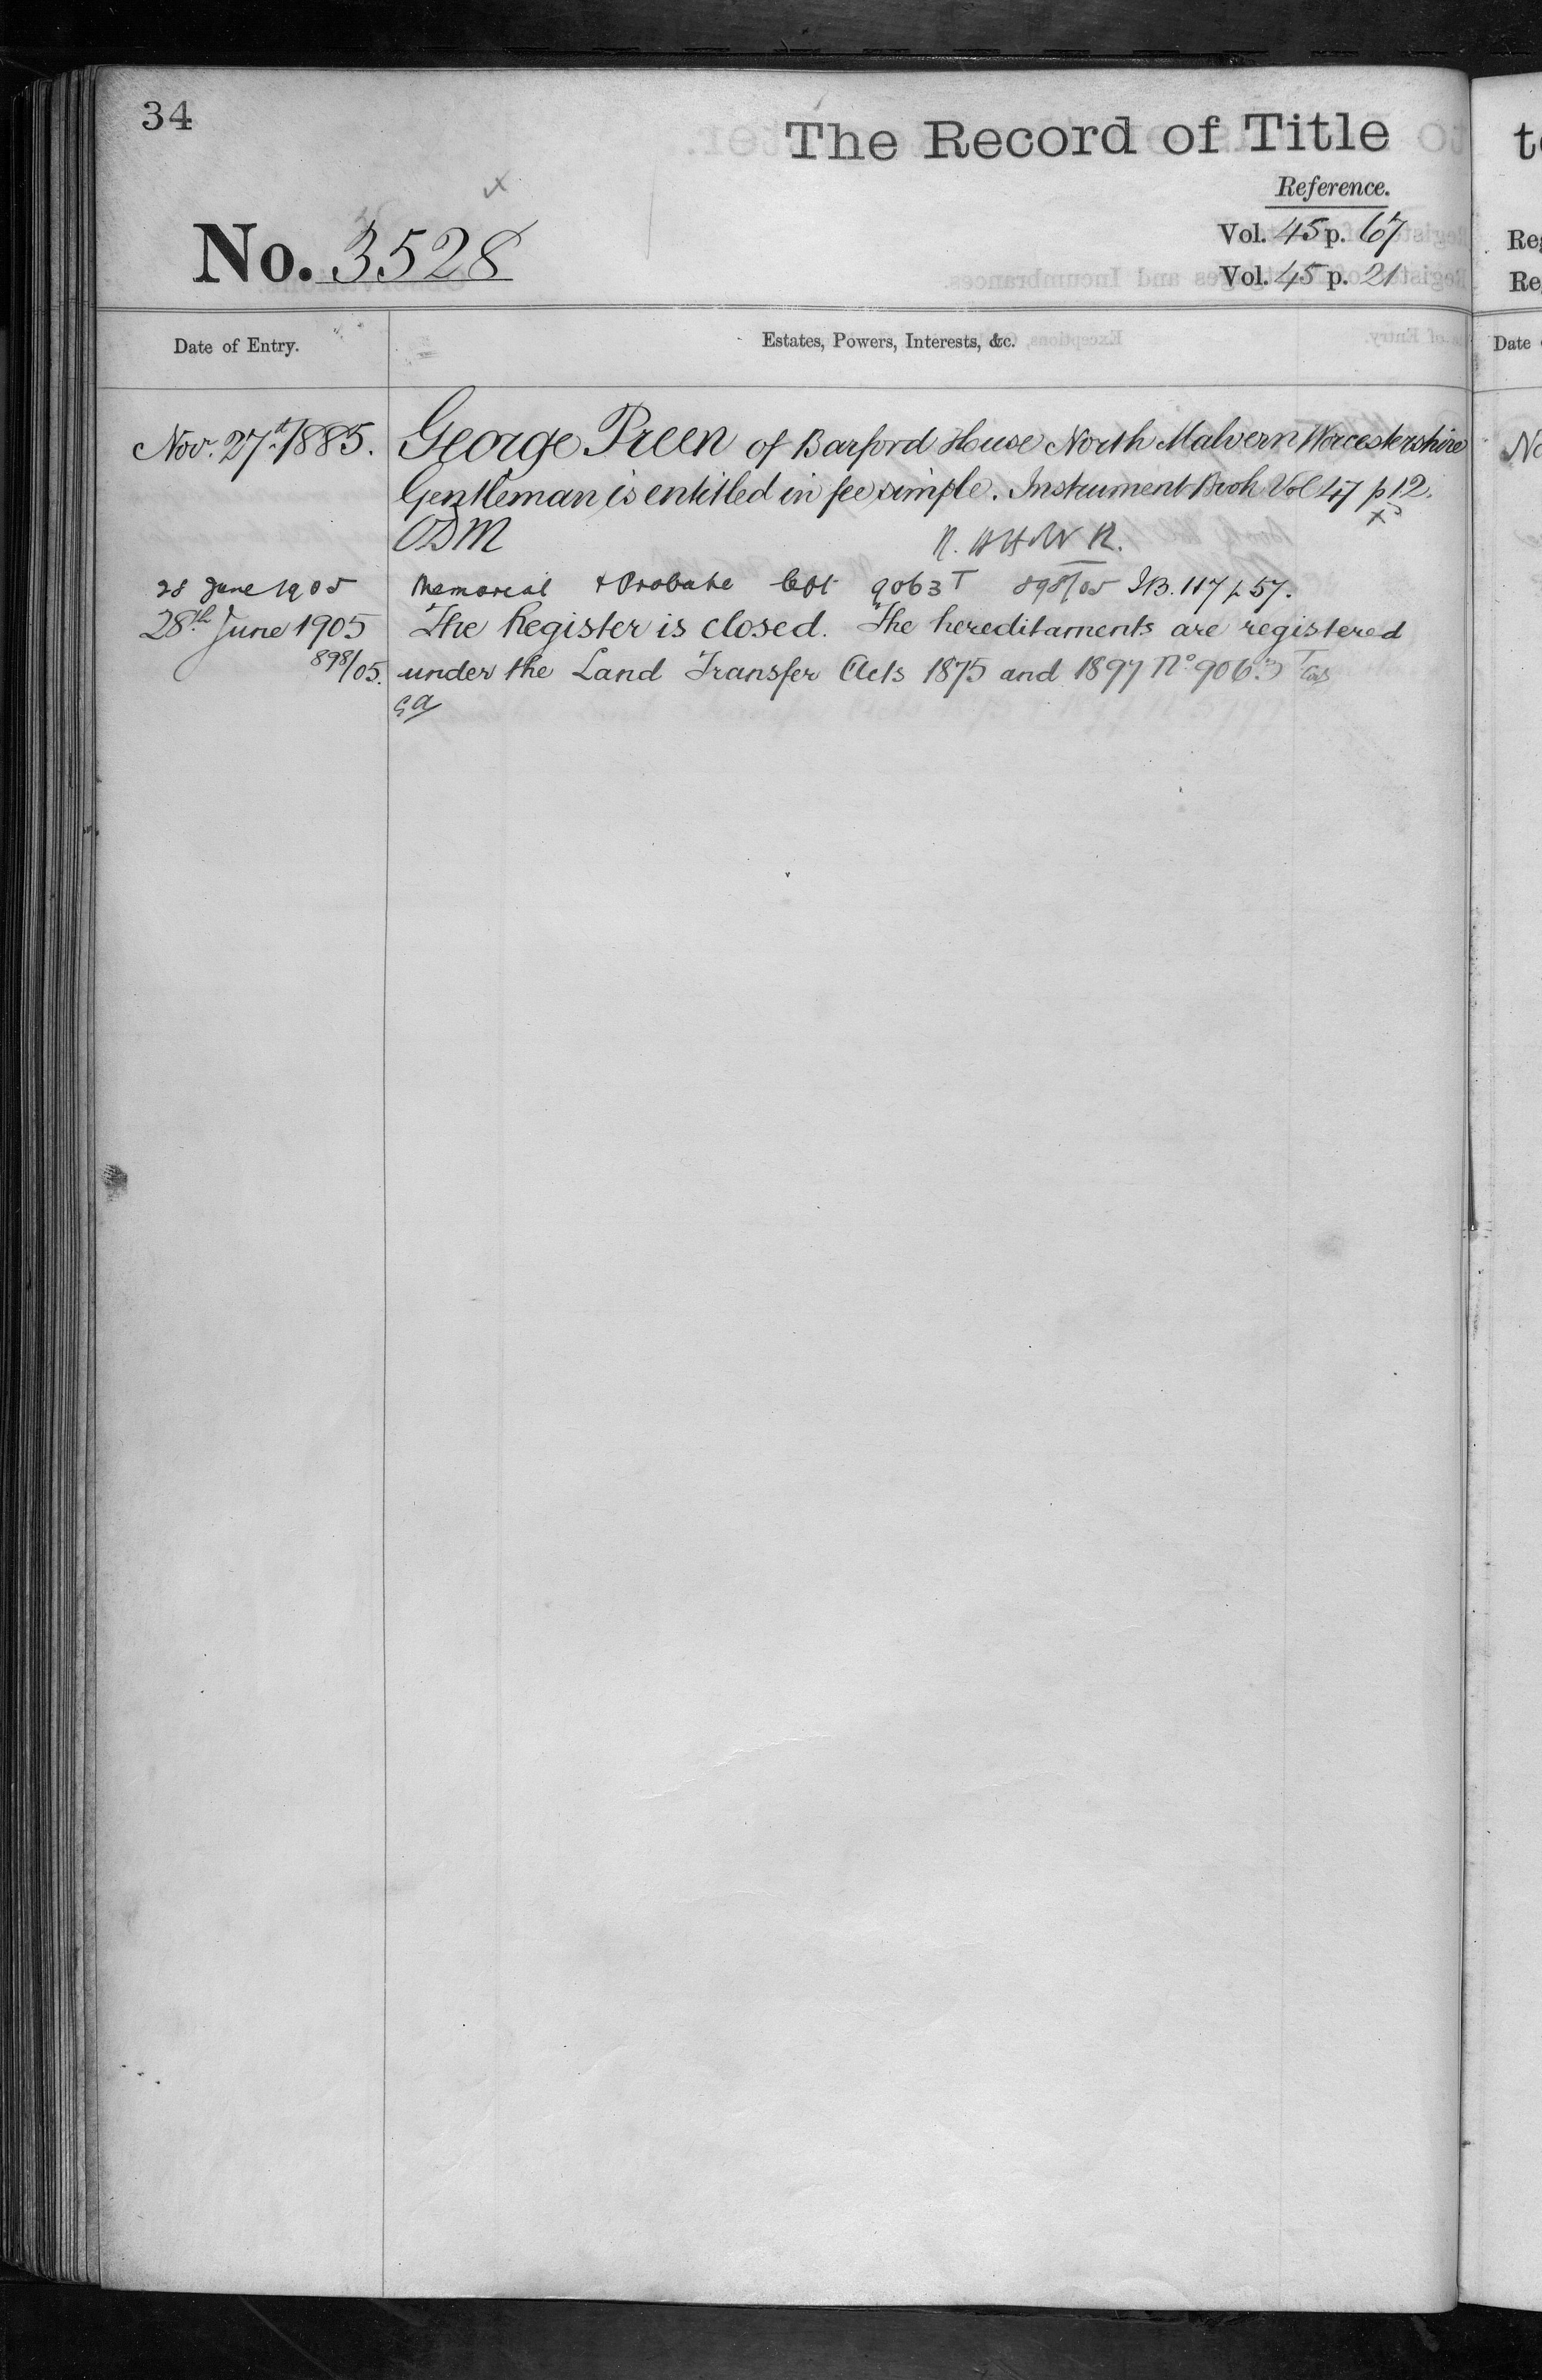 34
The Record of Title
Reference.
Vol. 45 p. 67
No. 3528
Vol. 45 p. 21
Date of Entry.
Estates, Powers, Interests, &c.
Nov. 27th 1885. George Preen of Barford House North Malvern Worcestershire
Gentleman is entitled in fee simple. Instrument Book Vol 47 p 12.
28 June 1905 Memorial & Probate left 9063 T 898/05 I.B. 117 p 57.
28th June 1905 The Register is closed. The hereditaments are registered
898/05. under the Land Transfer Acts 1875 and 1897 No 9063
to
Reg
Re
Date
No